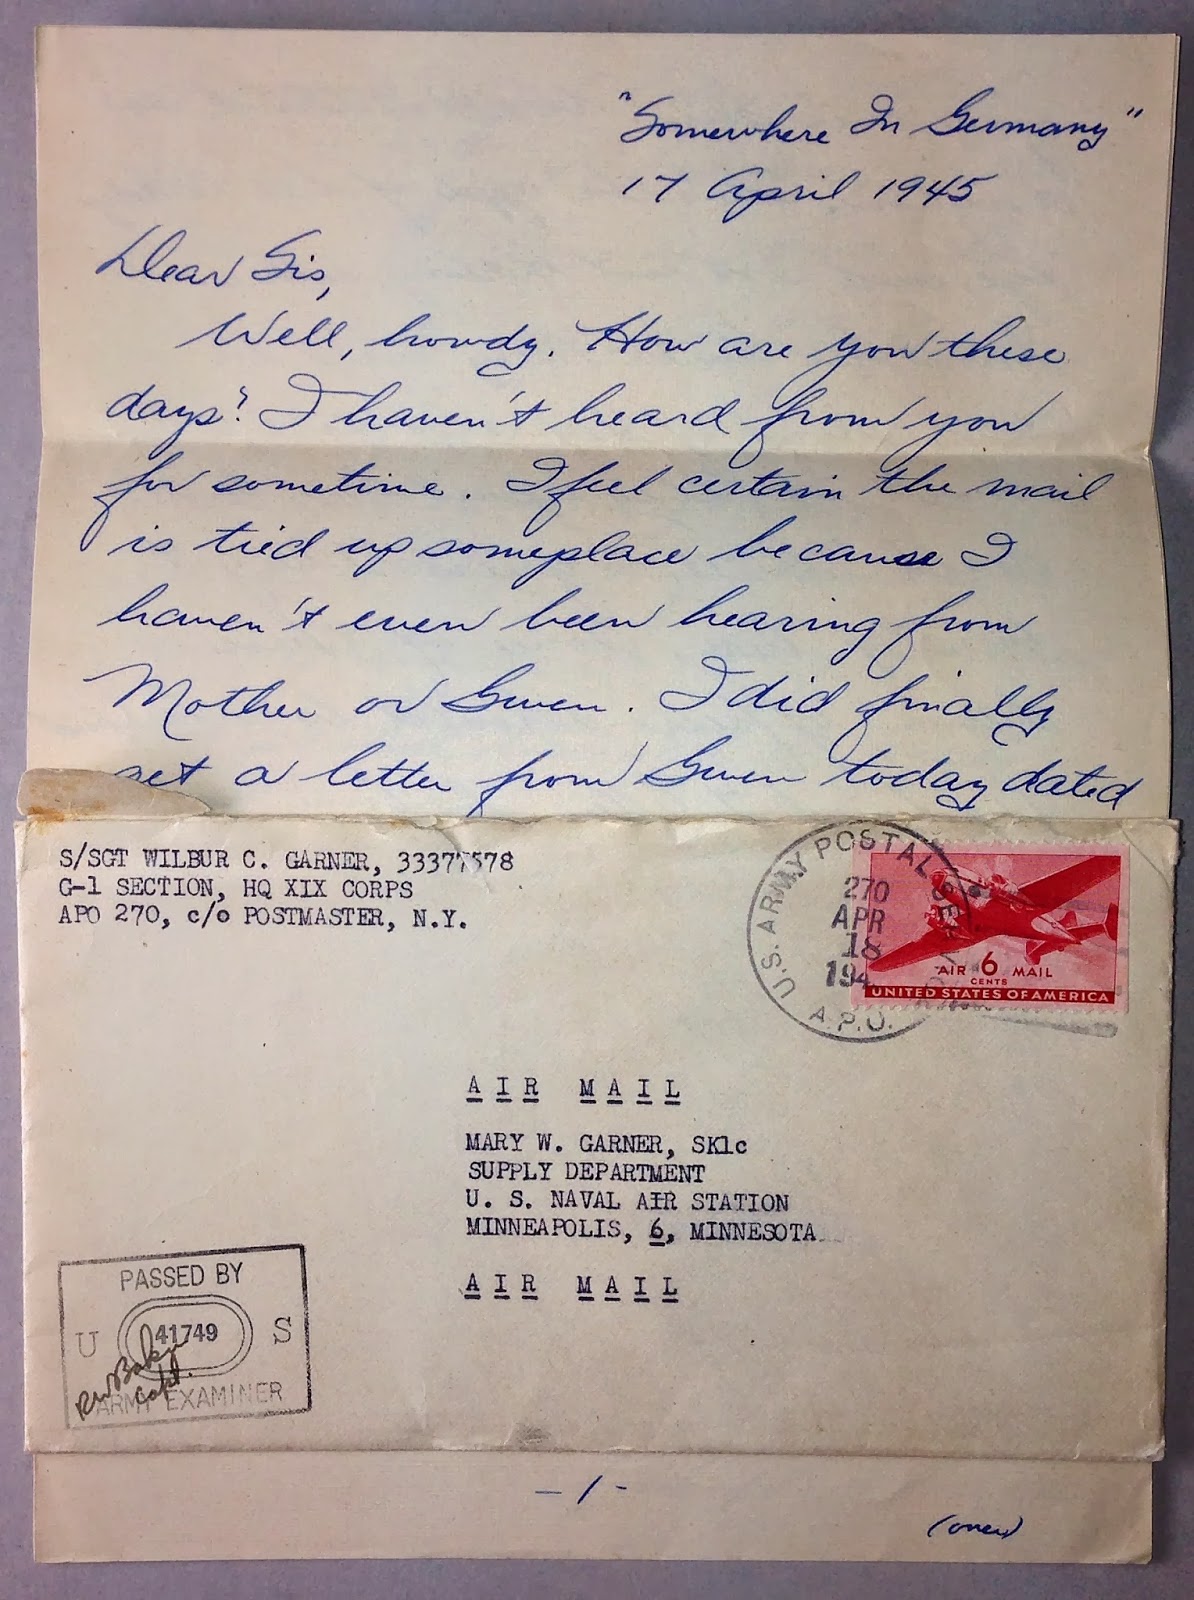 "Somewhere In Germany"
17 April 1945
Dear Sis,
Well, howdy. How are you these
days? I haven't heard from you
for sometime. I feel certain the mail
is tied up someplace because I
haven't even been hearing from
Mother or Gwen. I did finally
get a letter from Gwen today dated
S/SGT WILBUR C. GARNER, 33377578
G-1 SECTION, HQ XIX CORPS
APO 270, c/o POSTMASTER, N.Y.
U.S. ARMY POSTAL SERVICE
270
APR
18
194
A.P.O.
AIR 6 MAIL
CENTS
UNITED STATES OF AMERICA
AIR MAIL
MARY W. GARNER, SK1c
SUPPLY DEPARTMENT
U. S. NAVAL AIR STATION
MINNEAPOLIS, 6, MINNESOTA
AIR MAIL
PASSED BY
U 41749 S
ARMY EXAMINER
Capt.
-1-
(over)